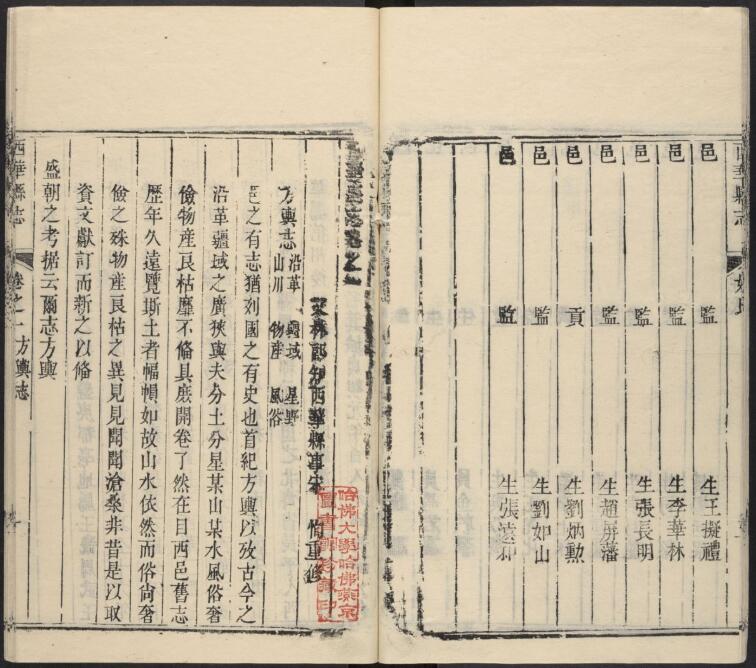 邑監生王擬禮
邑監生李華林
邑監生張長明
邑監生趙屏藩
邑貢生劉炳勲
邑監生劉如山
邑監生張遠
文林郎知西華縣事宋恂重修
方輿志
沿革 疆域 星野
山川 物産 風俗
邑之有志猶列國之有史也首紀方輿以攷古今之
沿革疆域之廣狹與夫分土分星某山某水風俗奢
儉物産良枯靡不備具庶開卷了然在目西邑舊志
歴年久遠覽斯土者幅幀如故山水依然而俗尙奢
儉之殊物産良枯之異見見聞聞滄桑非昔是以取
資文獻訂而新之以備
盛朝之考据云爾志方輿
西華縣志 卷之一 方輿志
哈佛大學哈佛燕京
圖書館珍藏印